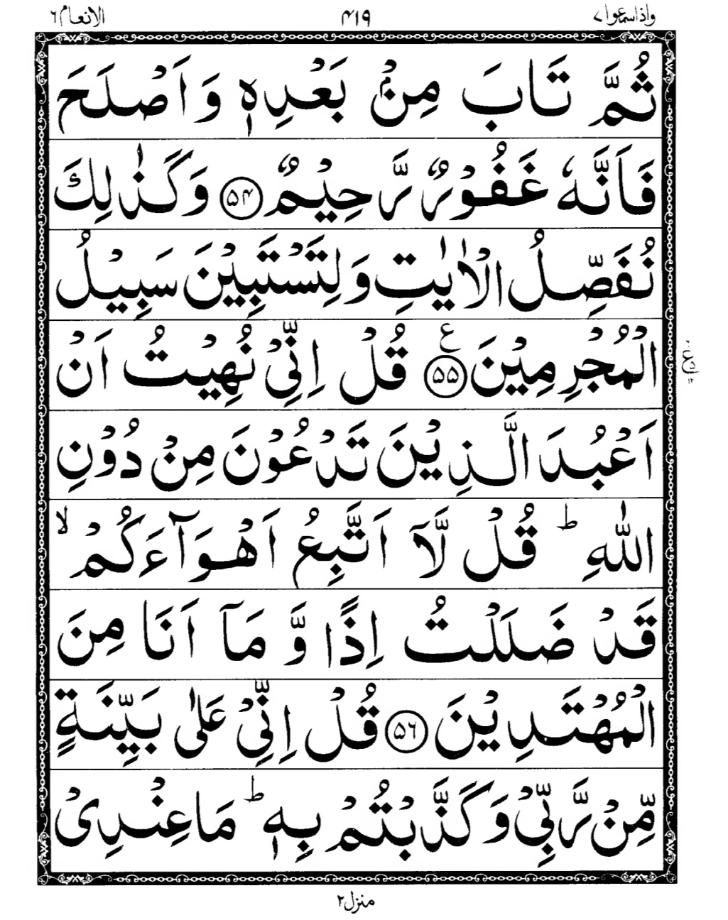 واذاسمعوا٧ ۴۱۹ الانعام٦
ثُمَّ تَابَ مِنْۢ بَعْدِهٖ وَاَصْلَحَ
فَاَنَّهٗ غَفُوْرٌ رَّحِيْمٌ ۵۴ وَكَذٰلِكَ
نُفَصِّلُ الْاٰيٰتِ وَلِتَسْتَبِيْنَ سَبِيْلُ
الْمُجْرِمِيْنَ ۵۵ ع قُلْ اِنِّيْ نُهِيْتُ اَنْ
اَعْبُدَ الَّذِيْنَ تَدْعُوْنَ مِنْ دُوْنِ
اللّٰهِ ؕ قُلْ لَّاۤ اَتَّبِعُ اَهْوَآءَكُمْ ۙ
قَدْ ضَلَلْتُ اِذًا وَّ مَاۤ اَنَا مِنَ
الْمُهْتَدِيْنَ ۵۶ قُلْ اِنِّيْ عَلٰى بَيِّنَةٍ
مِّنْ رَّبِّيْ وَكَذَّبْتُمْ بِهٖ ؕ مَاعِنْدِيْ
منزل۲